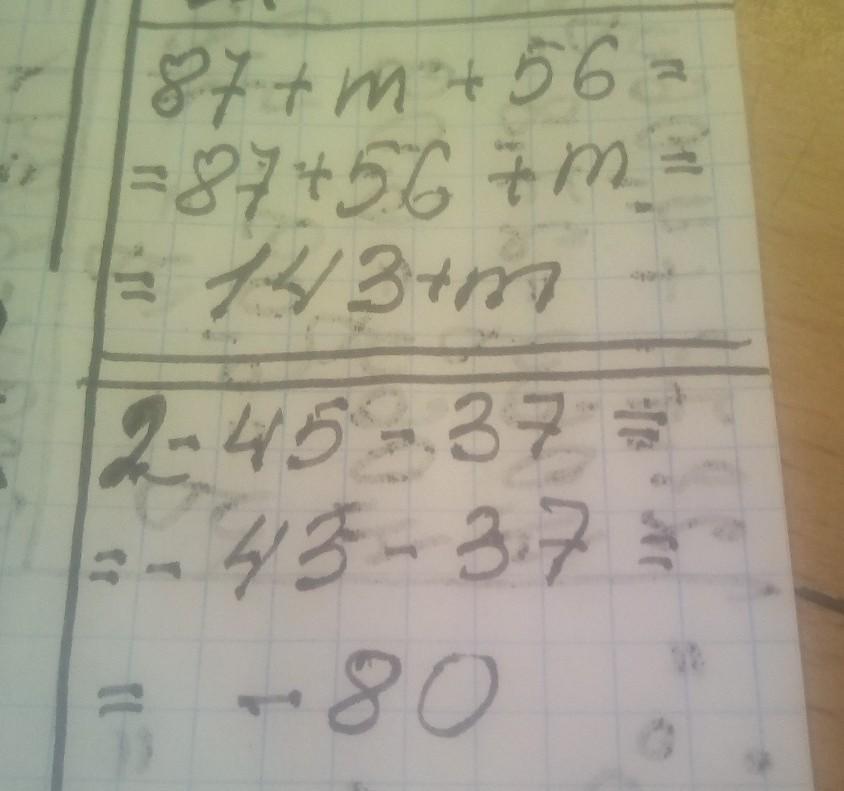 87 + m + 56 =
= 87 + 56 + m =
= 143 + m
2 - 45 - 37 =
= - 43 - 37 =
= - 80